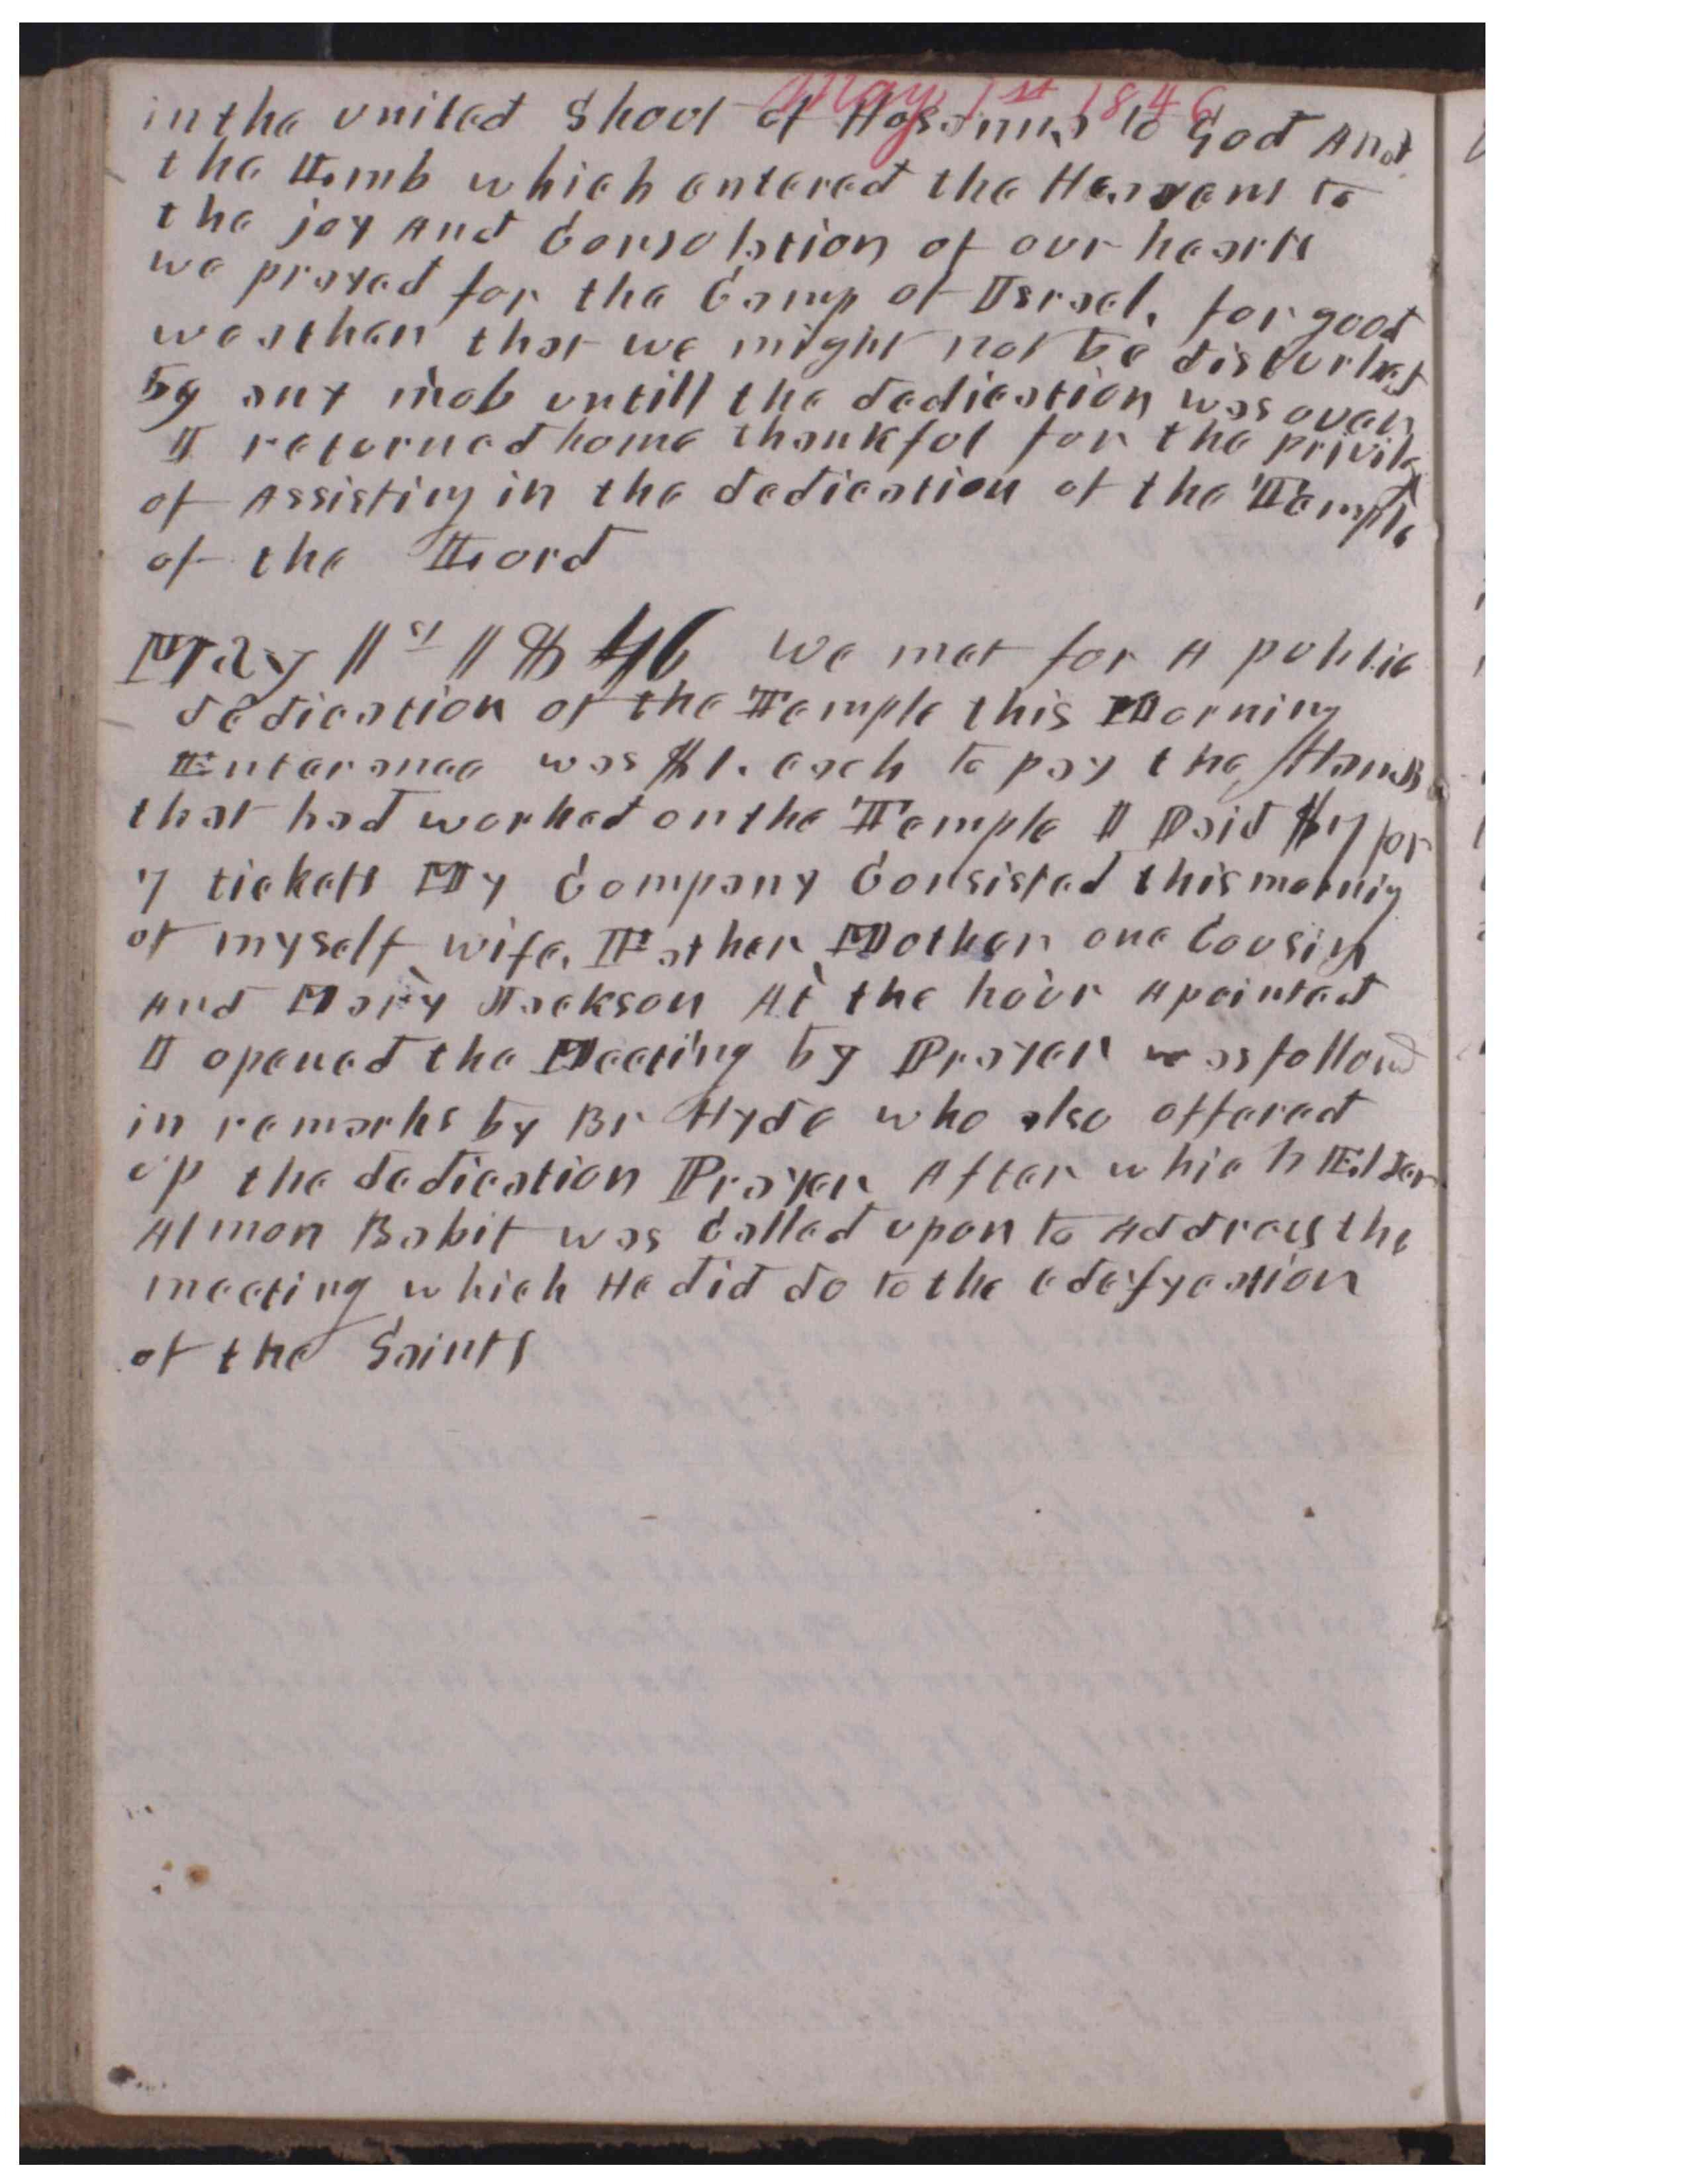 May 1st 1846
in the united Shout of Hosannas to God And
the Lamb which entered the Heavens to
the joy and Consolation of our hearts
we prayed for the Camp of Israel, for good
weather that we might not be disturbed
by any mob untill the dedication was over
I returned home thankful for the privilege
of Assisting in the dedication of the Temple
of the Lord
May 1st 1846 We met for A public
dedication of the Temple this Morning
Enterance was $1. each to pay the Hands
that had worked on the Temple I Paid $7 for
7 tickets My Company Consisted this mornig
of myself wife, Father Mother one Cousin
And Mary Jackson At the hour Apointed
I opened the Meeting by Prayer was followed
in remarks by Br Hyde who also offered
up the dedication Prayer After which Elder
Almon Babit was Called upon to Address the
meeting which He did do to the edefycation
of the Saints